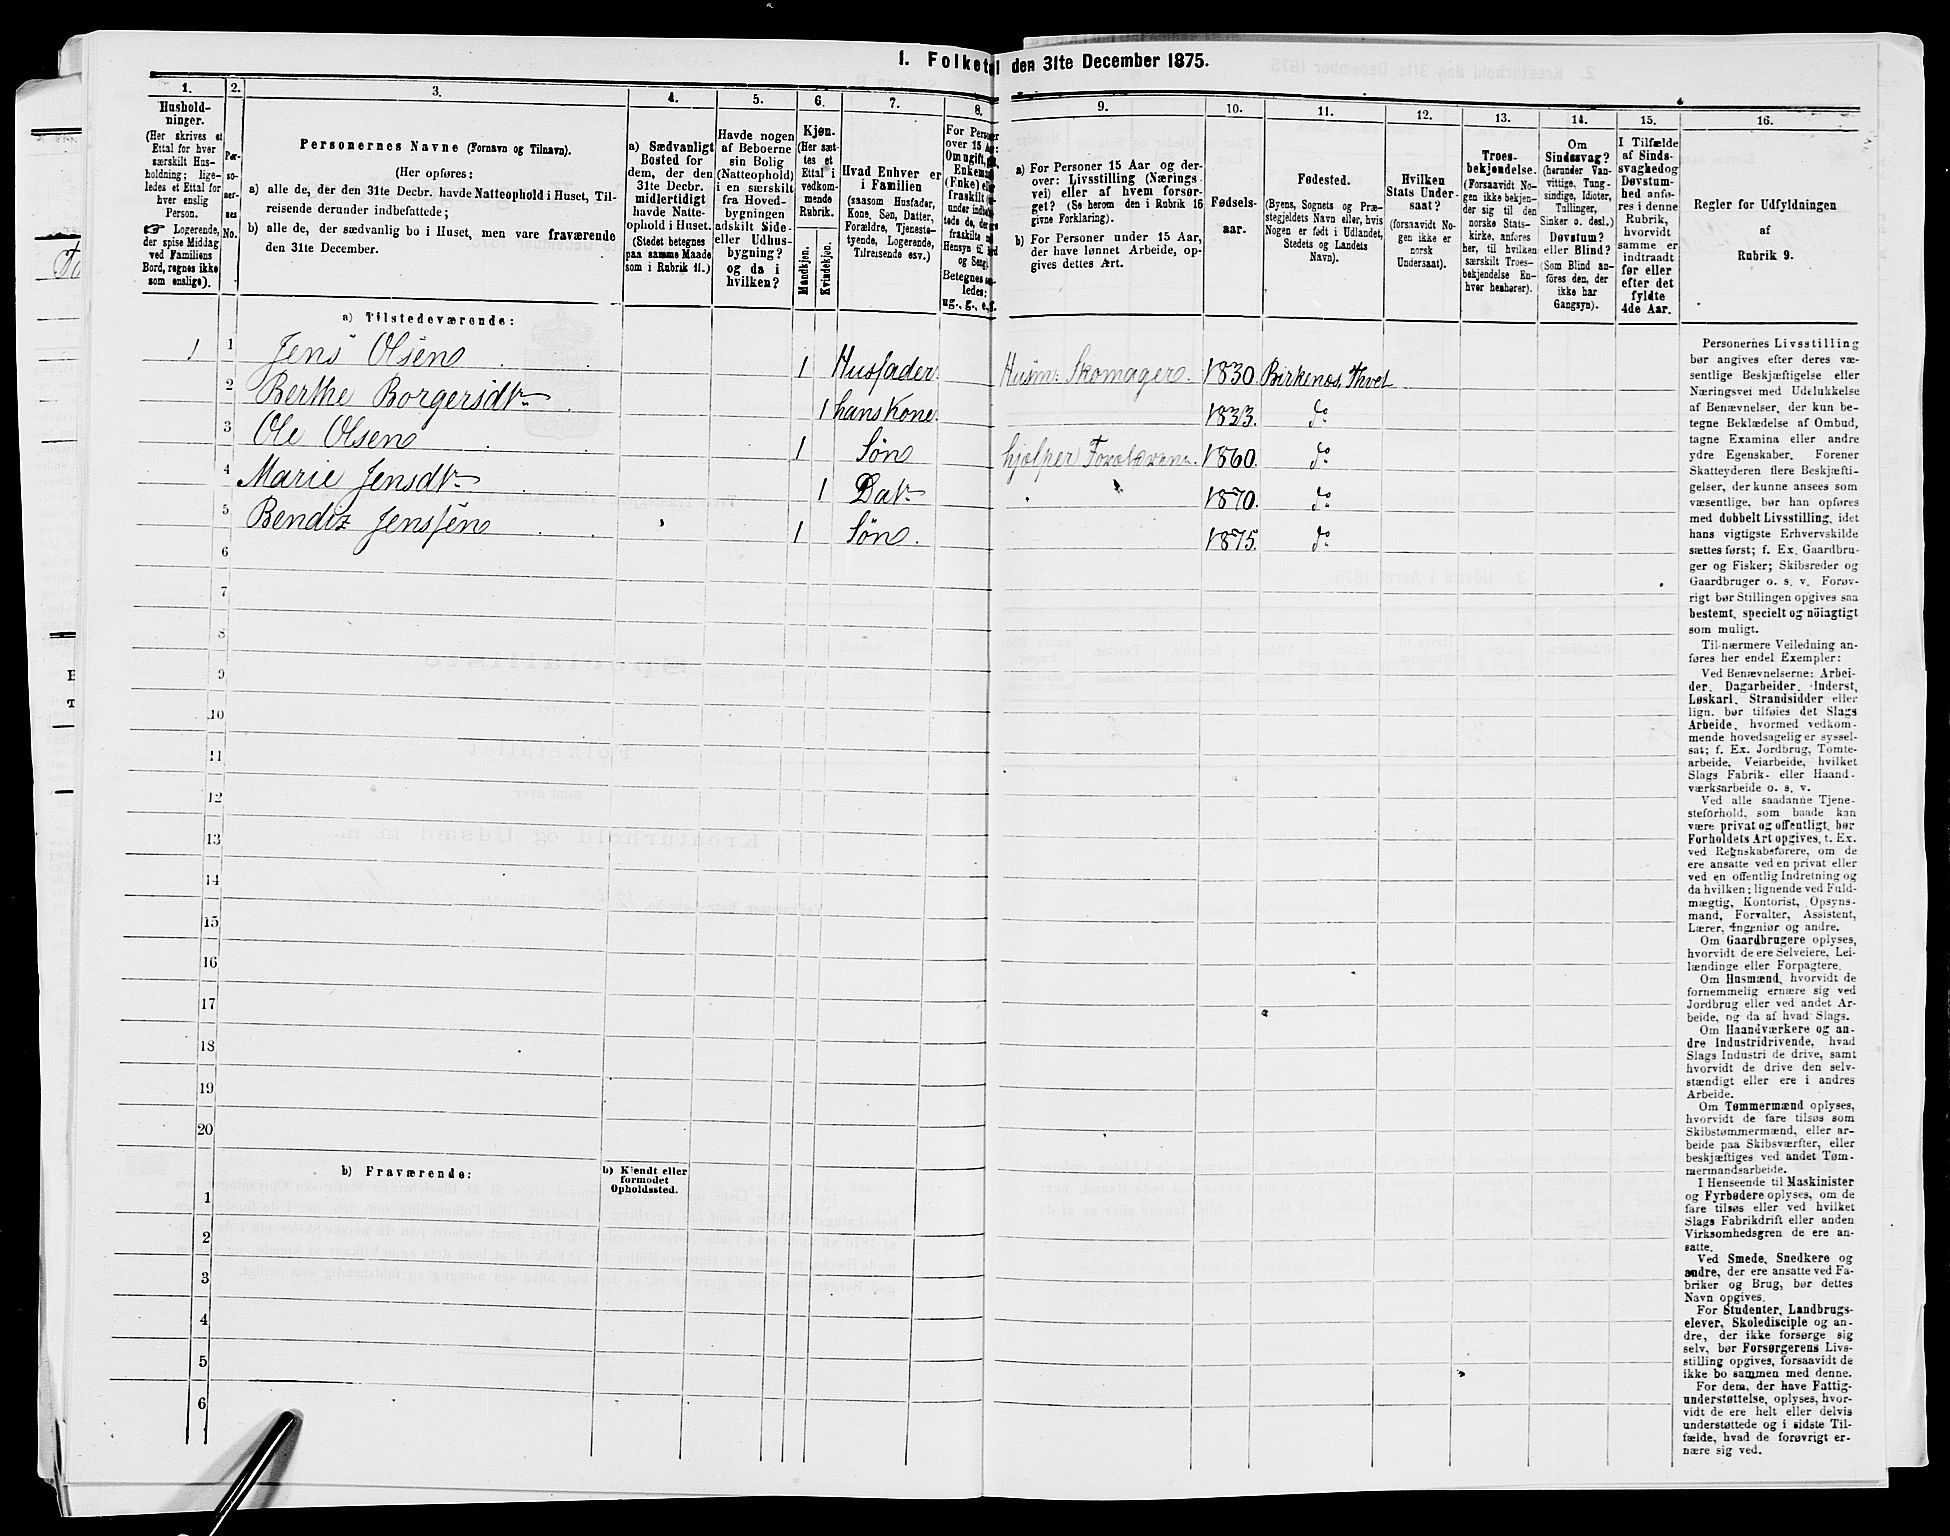 1. Folketal den 31te December 1875.
1.
Hushold-
ninger.
(Her skrives et
Ettal for hver
særskilt Hus-
holdning; lige-
ledes et Ettal for
hver enslig
Person.
Logerende,
der spise Middag
ved Familiens
Bord, regnes ikke
som enslige).
2.
Per-
so-
ner-
nes
No.
3.
Personernes Navne (Fornavn og Tilnavn).
(Her opføres:
a) alle de, der den 31te Decbr. havde Natteophold i Huset, Til-
reisende derunder indbefattede;
b) alle de, der sædvanlig bo i Huset, men vare fraværende
den 31te December.
4.
a) Sædvanligt
Bosted for
dem, der den
31te Decbr.
midlertidigt
havde Natte-
ophold i Huset.
(Stedet betegnes
paa samme Maade
som i Rubrik 11.)
5.
Havde nogen
af Beboerne
sin Bolig
(Natteophold)
i en særskilt
fra Hoved-
bygningen
adskilt Side-
eller Udhus-
bygning?
og da i
hvilken?
6.
Kjøn.
(Her sæt-
tes et
Ettal i
vedkom-
mende
Rubrik.
Mandkjøn.
Kvindekjøn.
7.
Hvad Enhver er
i Familien
(saasom Husfader,
Kone, Søn, Datter,
Forældre, Tjeneste-
tyende, Logerende,
Tilreisende osv.)
8.
For Personer
over 15 Aar:
Om ugift, gift,
Enkemand
(Enke) eller
fraskilt
Betegnes saa-
ledes:
ug., g., e., f.
9.
a) For Personer 15 Aar og der-
over: Livsstilling (Nærings-
vei) eller af hvem forsør-
get? (Se herom den i Rubrik 16
givne Forklaring).
b) For Personer under 15 Aar,
der have lønnet Arbeide, op-
gives dettes Art.
10.
Fødsels-
aar.
11.
Fødested.
(Byens, Sognets og Præ-
stegjeldets Navn eller, hvis
Nogen er født i Udlandet,
Stedets og Landets
Navn).
12.
Hvilken
Stats Under-
saat?
(forsaavidt No-
gen ikke er
norsk
Undersaat).
13.
Troes-
bekjendelse.
(Forsaavidt No-
gen ikke bekjen-
der sig til den
norske Stats-
kirke, anføres
her, til hvilken
særskilt Troes-
bekjendelse En-
hver henhører).
14.
Om
Sindssvag?
(herunder Van-
vittige, Tung-
sindige, Idioter,
Tullinger,
Sinker o. desl.)
Døvstum?
eller Blind?
(Som Blind an-
føres den, der
ikke har
Gangsyn).
15.
I Tilfælde
af Sinds-
svaghed og
Døvstum-
hed anfø-
res i denne
Rubrik,
hvorvidt
samme er
indtraadt
før eller
efter det
fyldte
4de Aar.
16.
Regler for Udfyldningen
af
Rubrik 9.
a) Tilstedeværende:
1 1 Jens Olsen 1 Husfader Husm: Skomager. 1830 Birkenes, Thvet
2 Berthe Borgersdtr 1 hans Kone. 1833. do
3 Ole Olsen 1 Søn hjælper Forældrene. 1860. do
4 Marie Jensdtr 1 Datr 1870. do
5 Bendix Jenssen 1 Søn. 1875. do
6
7
8
9
10
11
12
13
14
15
16
17
18
19
20
b) Fraværende:
b) Kjendt eller
formodet
Opholdssted.
1
2
3
4
5
6
Personernes Livsstilling
bør angives efter deres væ-
sentlige Beskjæftigelse eller
Næringsvei med Udelukkelse
af Benævnelser, der kun be-
tegne Beklædelse af Ombud,
tagne Examina eller andre
ydre Egenskaber. Forener
Skatteyderen flere Beskjæfti-
gelser, der kunne ansees som
væsentlige, bør han opføres
med dobbelt Livsstilling, idet
hans vigtigste Erhvervskilde
sættes først; f. Ex. Gaardbru-
ger og Fisker; Skibsreder og
Gaardbruger o. s. v. Forøv-
rigt bør Stillingen opgives saa
bestemt, specielt og nöiagtigt
som muligt.
Til nærmere Veiledning an-
føres her endel Exempler:
Ved Benævnelserne: Arbei-
der, Dagarbeider, Inderst,
Løskarl, Strandsidder eller
lign. bør tilføies det Slags
Arbeide, hvormed vedkom-
mende hovedsagelig er syssel-
sat; f. Ex. Jordbrug, Tomte-
arbeide, Veiarbeide, hvilket
Slags Fabrik- eller Haand-
værksarbeide o. s. v.
Ved alle saadanne Tjene-
steforhold, som baade kan
være privat og offentligt, bør
Forholdets Art opgives, t. Ex.
ved Regnskabsførere, om de
ere ansatte ved en privat eller
ved en offentlig Indretning og
da hvilken; lignende ved Fuld-
mægtig, Kontorist, Opsyns-
mand, Forvalter, Assistent,
Lærer, Ingeniør og andre.
Om Gaardbrugere oplyses,
hvorvidt de ere Selveiere, Lei-
lændinge eller Forpagtere.
Om Husmænd, hvorvidt de
fornemmelig ernære sig ved
Jordbrug eller ved andet Ar-
beide, og da af hvad Slags.
Om Haandværkere og an-
dre Industridrivende, hvad
Slags Industri de drive, samt
hvorvidt de drive den selv-
stændigt eller ere i andres
Arbeide.
Om Tømmermænd oplyses,
hvorvidt de fare tilsøs som
Skibstømmermænd, eller ar-
beide paa Skibsværfter, eller
beskjæftiges ved andet Tøm-
mermandsarbeide.
I Henseende til Maskinister
og Fyrbødere oplyses, om de
fare tilsøs eller ved hvilket
Slags Fabrikdrift eller anden
Virksomhedsgren de ere an-
satte.
Ved Smede, Snedkere og
andre, der ere ansatte ved Fa-
briker og Brug, bør dettes
Navn opgives.
For Studenter, Landbrugs-
elever, Skoledisciple og an-
dre, der ikke forsørge sig
selv, bør Forsørgerens Livs-
stilling opgives, forsaavidt de
ikke bo sammen med denne.
For dem, der have Fattig-
understøttelse, oplyses, hvor-
vidt de ere helt eller delvis
understøttede og i sidste Til-
fælde, hvad de forøvrigt er-
nære sig ved.